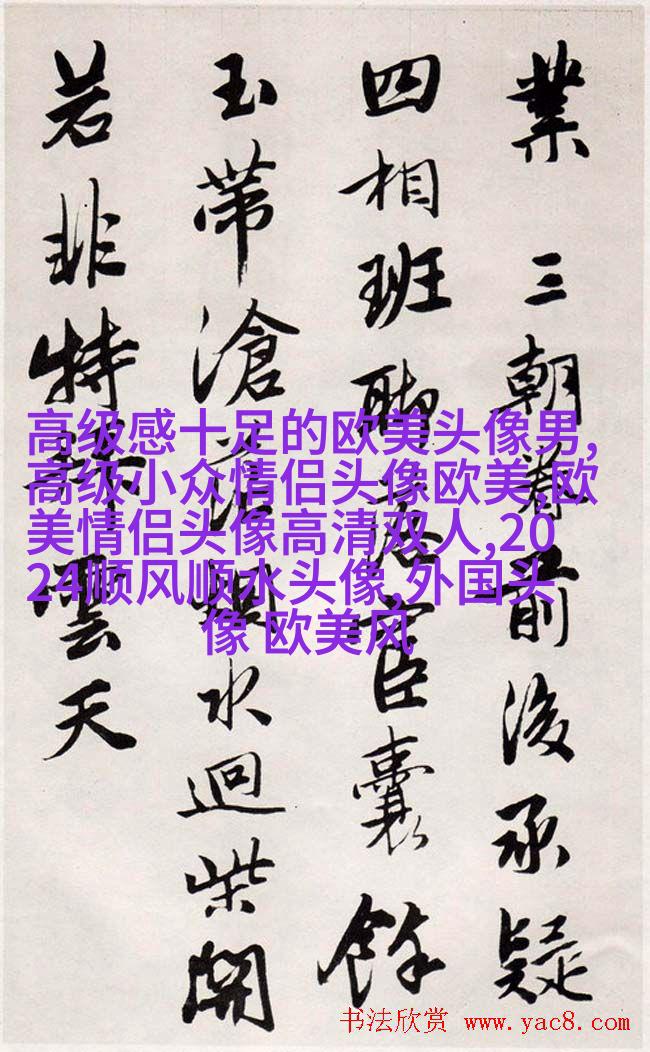 業三朝前後承疑
四相班聯臣囊餘
玉帶滄水迴柴開
若非特雲天
高级感十足的欧美头像男,
高级小众情侣头像欧美,欧
美情侣头像高清双人,20
24顺风顺水头像,外国头
像 欧美风
书法欣赏 www.yac8.com